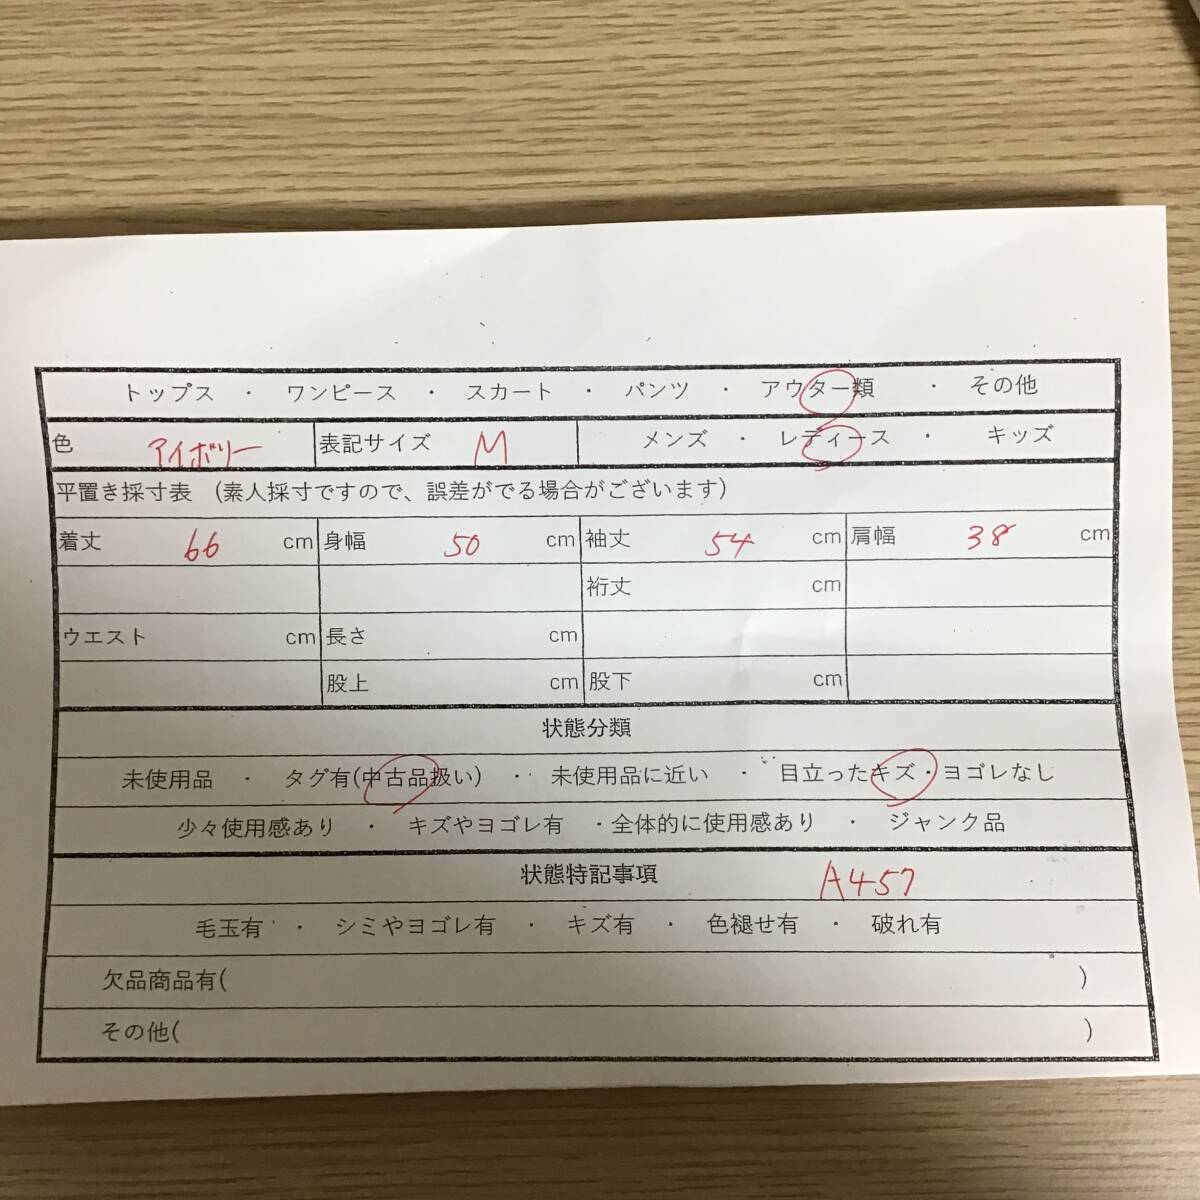 トップス ・ ワンピース ・ スカート ・ パンツ ・ アウター類 ・ その他
色 アイボリー 表記サイズ M メンズ ・ レディース ・ キッズ
平置き採寸表 (素人採寸ですので、誤差がでる場合がございます)
着丈 66 cm 身幅 50 cm 袖丈 54 cm 肩幅 38 cm
裄丈 cm
ウエスト cm 長さ cm
股上 cm 股下 cm
状態分類
未使用品 ・ タグ有(中古品扱い) ・ 未使用品に近い ・ 目立ったキズ・ヨゴレなし
少々使用感あり ・ キズやヨゴレ有 ・全体的に使用感あり ・ ジャンク品
状態特記事項 A457
毛玉有 ・ シミやヨゴレ有 ・ キズ有 ・ 色褪せ有 ・ 破れ有
欠品商品有( )
その他( )